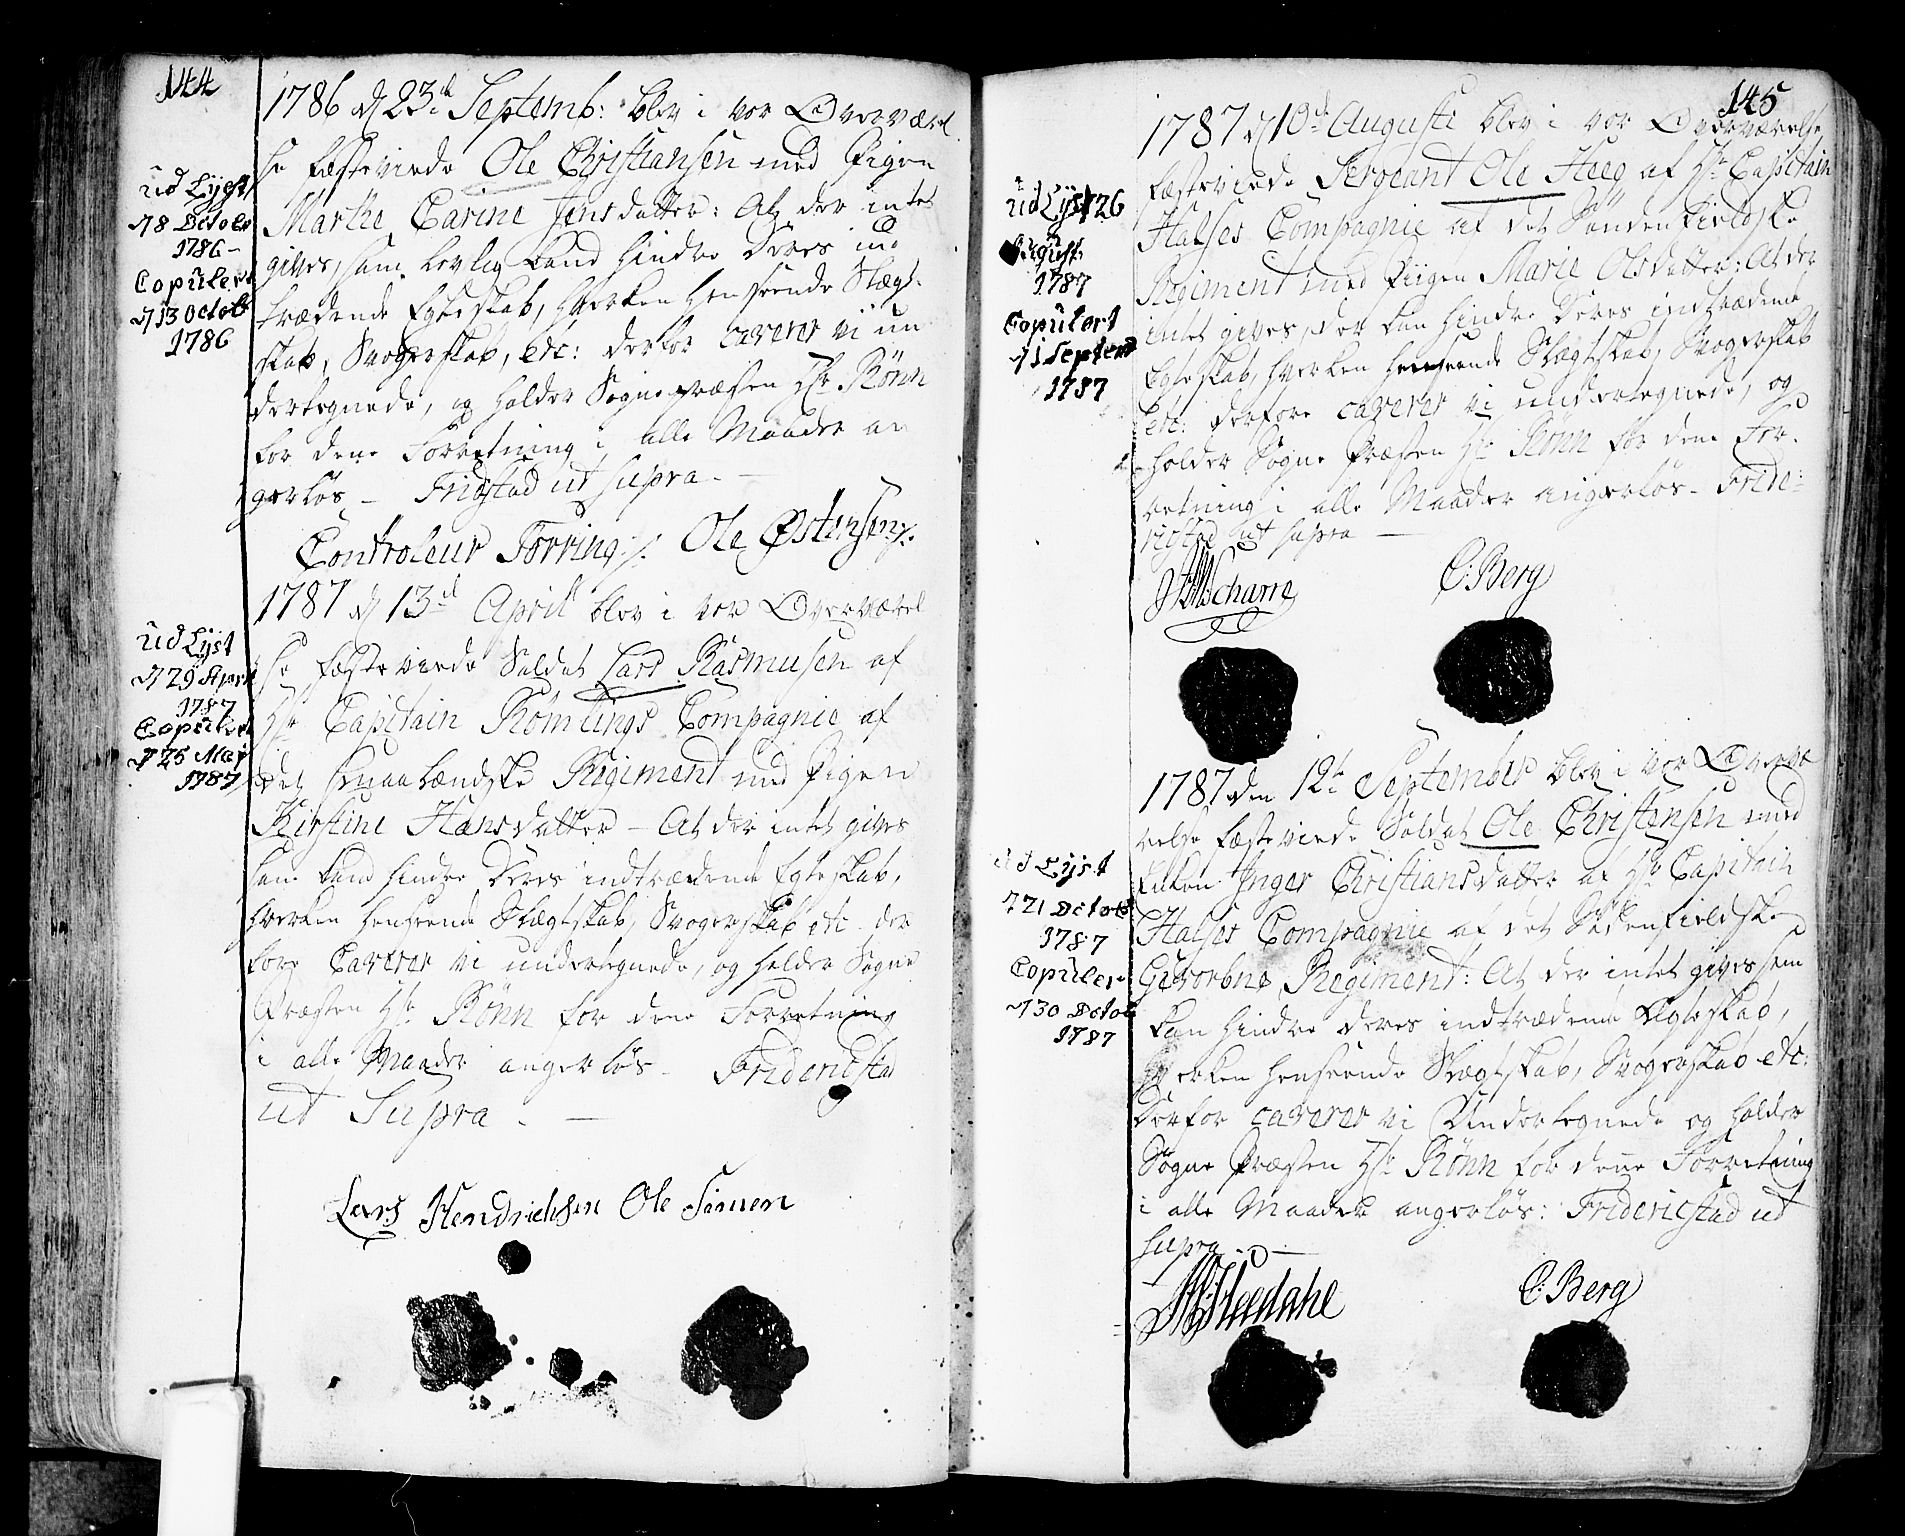 144
1786 d 23d Septemb: blev i vor Overværel
se fæsteviede Ole Christiansen med Pigen
Marthe Carine Jensdatter: At der intet
gives, som lovlig kand hindre Deres ind
trædende Egteskab, hverken henseende Slægt-
skab, Svogerskab, etc: derfor caverer vi un
dertegnede, og holder Sognepræsten Hr Rönn
for dene Forretning i alle Maader an
gerløs – Fridstad ut supra –
Controleur Torring ./. Ole Østensen ./.
Ud Lÿst
d 8 Octobr
1786 –
Copulert
d 13 Octob
1786
1787 d 13d April blev i vor Overværel
se fæsteviede Soldat Lars Rasmusen af
Hr Capitain Römlings Compagnie af
det smaalændske Regiment med Pigen
Kirstine Hansdatter – At der intet gives
som kand hindre Deres indtrædende Egteskab,
hverken henseende Slægtskab, Svogerskab etc der
fore Caverer vi undertegnede, og holder Sogne
Præsten Hr Rönn for dene Forretning
i alle Maader angerløs – Fridericstad
ut Supra . –
Ud Lÿst
d 29 April
1787
Copulert
d 25 Maj
1787
Lars Hendrichsen Ole Simen
145
1787 d 10d Augusti blev i vor Overværelse
fæsteviede Sergeant Ole Heeg af Hr Capitain
Halses Compagnie af det Söndenfieldske
Regiment med Piigen Marie Olsdatter: At der
intet gives, der kan hindre Deres indtrædende
Egteskab, hverken henseende Slægtskab, Svogerskab
etc: derfore caverer vi undertegnede, og
holder Sogne Præsten Hr Rönn for dene For-
retning i alle Maader angerløs – Fride-
richstad ut supra –
Ud Lÿst 26
August
1787
Copulert
d 1 Septemb
1787
C: Berg
1787 den 12te September blev i vor Overvæ
relse fæsteviede Soldat Ole Christensen med
Enken Inger Christiansdatter af Hr Capitain
Halses Compagnie af det Södenfieldske
Gevorbne Regiment: At der intet gives som
kan hindre deres indtrædende Ægteskab,
hverken henseende Slægtskab, Svogerskab etc:
Derfor caverer vi Undertegnede og holder
Sogne Præsten Hr Rönn for dene Forretning
i alle Maader angerløs: Fridericstad ut
supra –
Ud Lÿst
d 21 Octob
1787
Copulert
d 30 Octob
1787
C: Berg